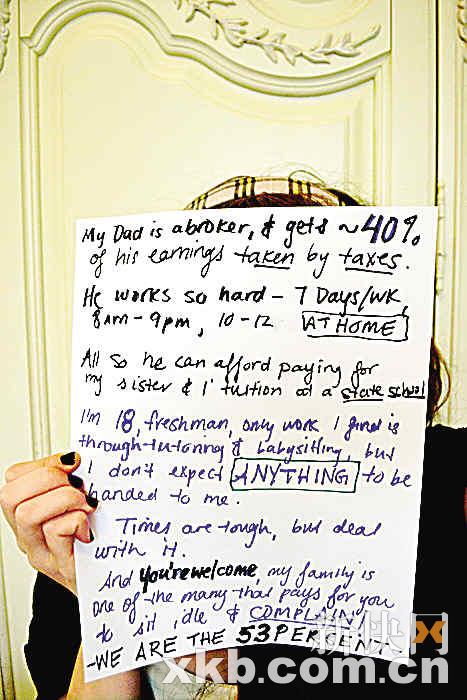 My Dad is a broker, & gets ~40%
of his earnings taken by taxes.
He works so hard - 7 Days/wk,
8am - 9pm, 10-12 AT HOME
All so he can afford paying for
my sister & I' tuition at a state school
I'm 18, freshman, only work I find is
through tutoring & babysitting, but
I don't expect ANYTHING to be
handed to me.
Times are tough, but deal
with it.
And you're welcome, my family is
one of the many that pays for you
to sit idle & COMPLAIN!
-WE ARE THE 53 PERCENT-
新快网
xkb.com.cn